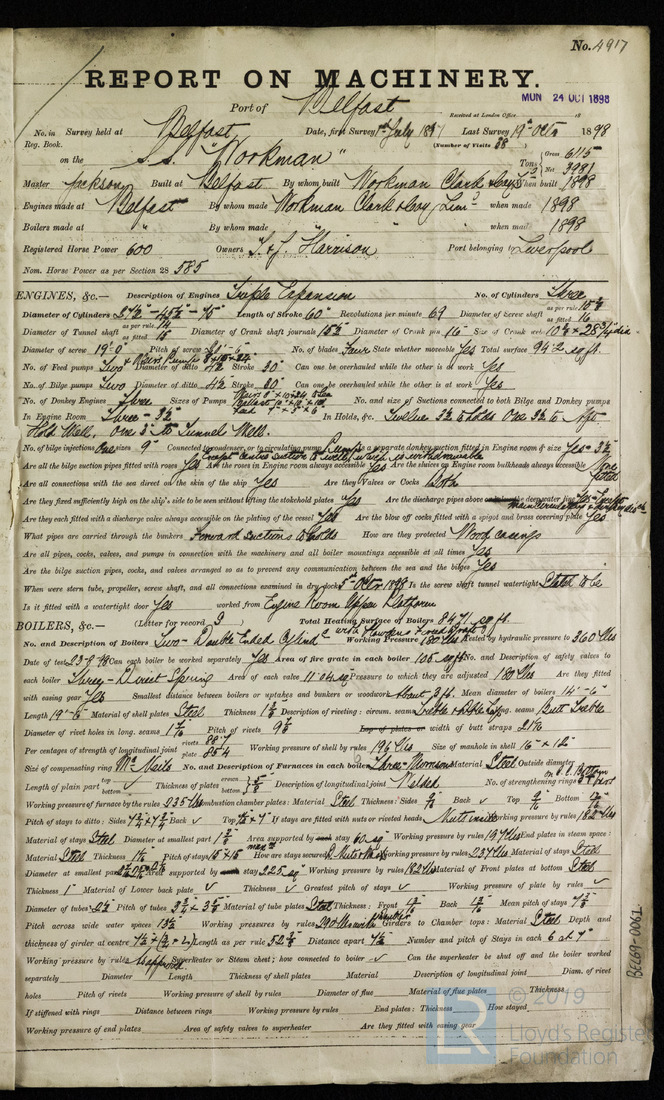 No. 4917
REPORT ON MACHINERY.
Port of Belfast
MON 24 OCT 1898
Received at London Office
No. in Survey held at Belfast Date, first Survey July Last Survey 19th Octr 1898
Reg. Book. (Number of Visits 58)
on the S.S. "Workman" Tons Gross 6115 Net 3981
Master Jackson Built at Belfast By whom built Workman Clark & Coy Ld When built 1898
Engines made at Belfast By whom made Workman Clark & Coy Limd when made 1898
Boilers made at " By whom made " when made 1898
Registered Horse Power 600 Owners T. & J. Harrison Port belonging to Liverpool
Nom. Horse Power as per Section 28 585
ENGINES, &c.— Description of Engines Triple Expansion No. of Cylinders Three
Diameter of Cylinders Length of Stroke 60" Revolutions per minute 69 Diameter of Screw shaft as per rule as fitted 16
Diameter of Tunnel shaft as per rule 14 as fitted 15 Diameter of Crank shaft journals 15½ Diameter of Crank pin 16" Size of Crank webs
Diameter of screw 19'0" Pitch of screw No. of blades Four State whether moveable Yes Total surface 94.2 sq ft.
No. of Feed pumps Two Diameter of ditto Stroke 30" Can one be overhauled while the other is at work Yes
No. of Bilge pumps Two Diameter of ditto Stroke 30" Can one be overhauled while the other is at work Yes
No. of Donkey Engines Three Sizes of Pumps No. and size of Suctions connected to both Bilge and Donkey pumps
In Engine Room Three - 3½" In Holds, &c. Twelve 3½ to Holds One 3½ to Aft
Hold Well, One 3 to Tunnel Well.
No. of bilge injections One sizes 9" Connected to condenser, or to circulating pump Pump Is a separate donkey suction fitted in Engine room & size Yes - 3½"
Are all the bilge suction pipes fitted with roses Yes Are the roses in Engine room always accessible Yes Are the sluices on Engine room bulkheads always accessible None fitted
Are all connections with the sea direct on the skin of the ship Yes Are they Valves or Cocks Both
Are they fixed sufficiently high on the ship's side to be seen without lifting the stokehold plates Yes Are the discharge pipes above the deep water line Yes - Except
Are they each fitted with a discharge valve always accessible on the plating of the vessel Yes Are the blow off cocks fitted with a spigot and brass covering plate Yes
What pipes are carried through the bunkers Forward Suctions to Holds How are they protected Wood casings
Are all pipes, cocks, valves, and pumps in connection with the machinery and all boiler mountings accessible at all times Yes
Are the bilge suction pipes, cocks, and valves arranged so as to prevent any communication between the sea and the bilges Yes
When were stern tube, propeller, screw shaft, and all connections examined in dry dock 5th Octr 1898 Is the screw shaft tunnel watertight Stated to be
Is it fitted with a watertight door Yes worked from Engine Room Upper Platform
BOILERS, &c.— (Letter for record S) Total Heating Surface of Boilers 8471 sq ft.
No. and Description of Boilers Two - Double Ended Cylind Working Pressure 180 lbs Tested by hydraulic pressure to 360 lbs
Date of test 23-8-98 Can each boiler be worked separately Yes Area of fire grate in each boiler 105 sq ft No. and Description of safety valves to
each boiler Three - Direct Spring Area of each valve 11.04 sq Pressure to which they are adjusted 180 lbs Are they fitted
with easing gear Yes Smallest distance between boilers or uptakes and bunkers or woodwork about 2 ft. Mean diameter of boilers 14'-6"
Length 19'-5 Material of shell plates Steel Thickness Description of riveting: circum. seams Treble & Double Lap long. seams Butt Treble
Diameter of rivet holes in long. seams Pitch of rivets Lap of plates or width of butt straps
Per centages of strength of longitudinal joint rivets 88.7 plate 85.4 Working pressure of shell by rules 196 lbs Size of manhole in shell 16" × 12"
Size of compensating ring McNeils No. and Description of Furnaces in each boiler Three Morisons Material Steel Outside diameter
Length of plain part top bottom Thickness of plates crown bottom Description of longitudinal joint Welded No. of strengthening rings
Working pressure of furnace by the rules 235 lbs Combustion chamber plates: Material Steel Thickness: Sides Back ✓ Top Bottom
Pitch of stays to ditto: Sides Back ✓ Top If stays are fitted with nuts or riveted heads Nuts inside Working pressure by rules
Material of stays Steel Diameter at smallest part Area supported by each stay 60 sq" Working pressure by rules 197 lbs End plates in steam space:
Material Steel Thickness Pitch of stays 15 × 15 How are stays secured Working pressure by rules Material of stays Steel
Diameter at smallest part Area supported by each stay 225 sq" Working pressure by rules 182 lbs Material of Front plates at bottom Steel
Thickness 1" Material of Lower back plate ✓ Thickness ✓ Greatest pitch of stays ✓ Working pressure of plate by rules ✓
Diameter of tubes Pitch of tubes Material of tube plates Steel Thickness: Front Back Mean pitch of stays
Pitch across wide water spaces 13½ Working pressures by rules Girders to Chamber tops: Material Steel Depth and
thickness of girder at centre Length as per rule Distance apart Number and pitch of Stays in each 6 at 7"
Working pressure by rules Superheater or Steam chest; how connected to boiler ✓ Can the superheater be shut off and the boiler worked
separately Diameter Length Thickness of shell plates Material Description of longitudinal joint Diam. of rivet
holes Pitch of rivets Working pressure of shell by rules Diameter of flue Material of flue plates Thickness
If stiffened with rings Distance between rings Working pressure by rules End plates: Thickness How stayed
Working pressure of end plates Area of safety valves to superheater Are they fitted with easing gear
BEL69-0061
LR
© 2019
Lloyd's Register
Foundation